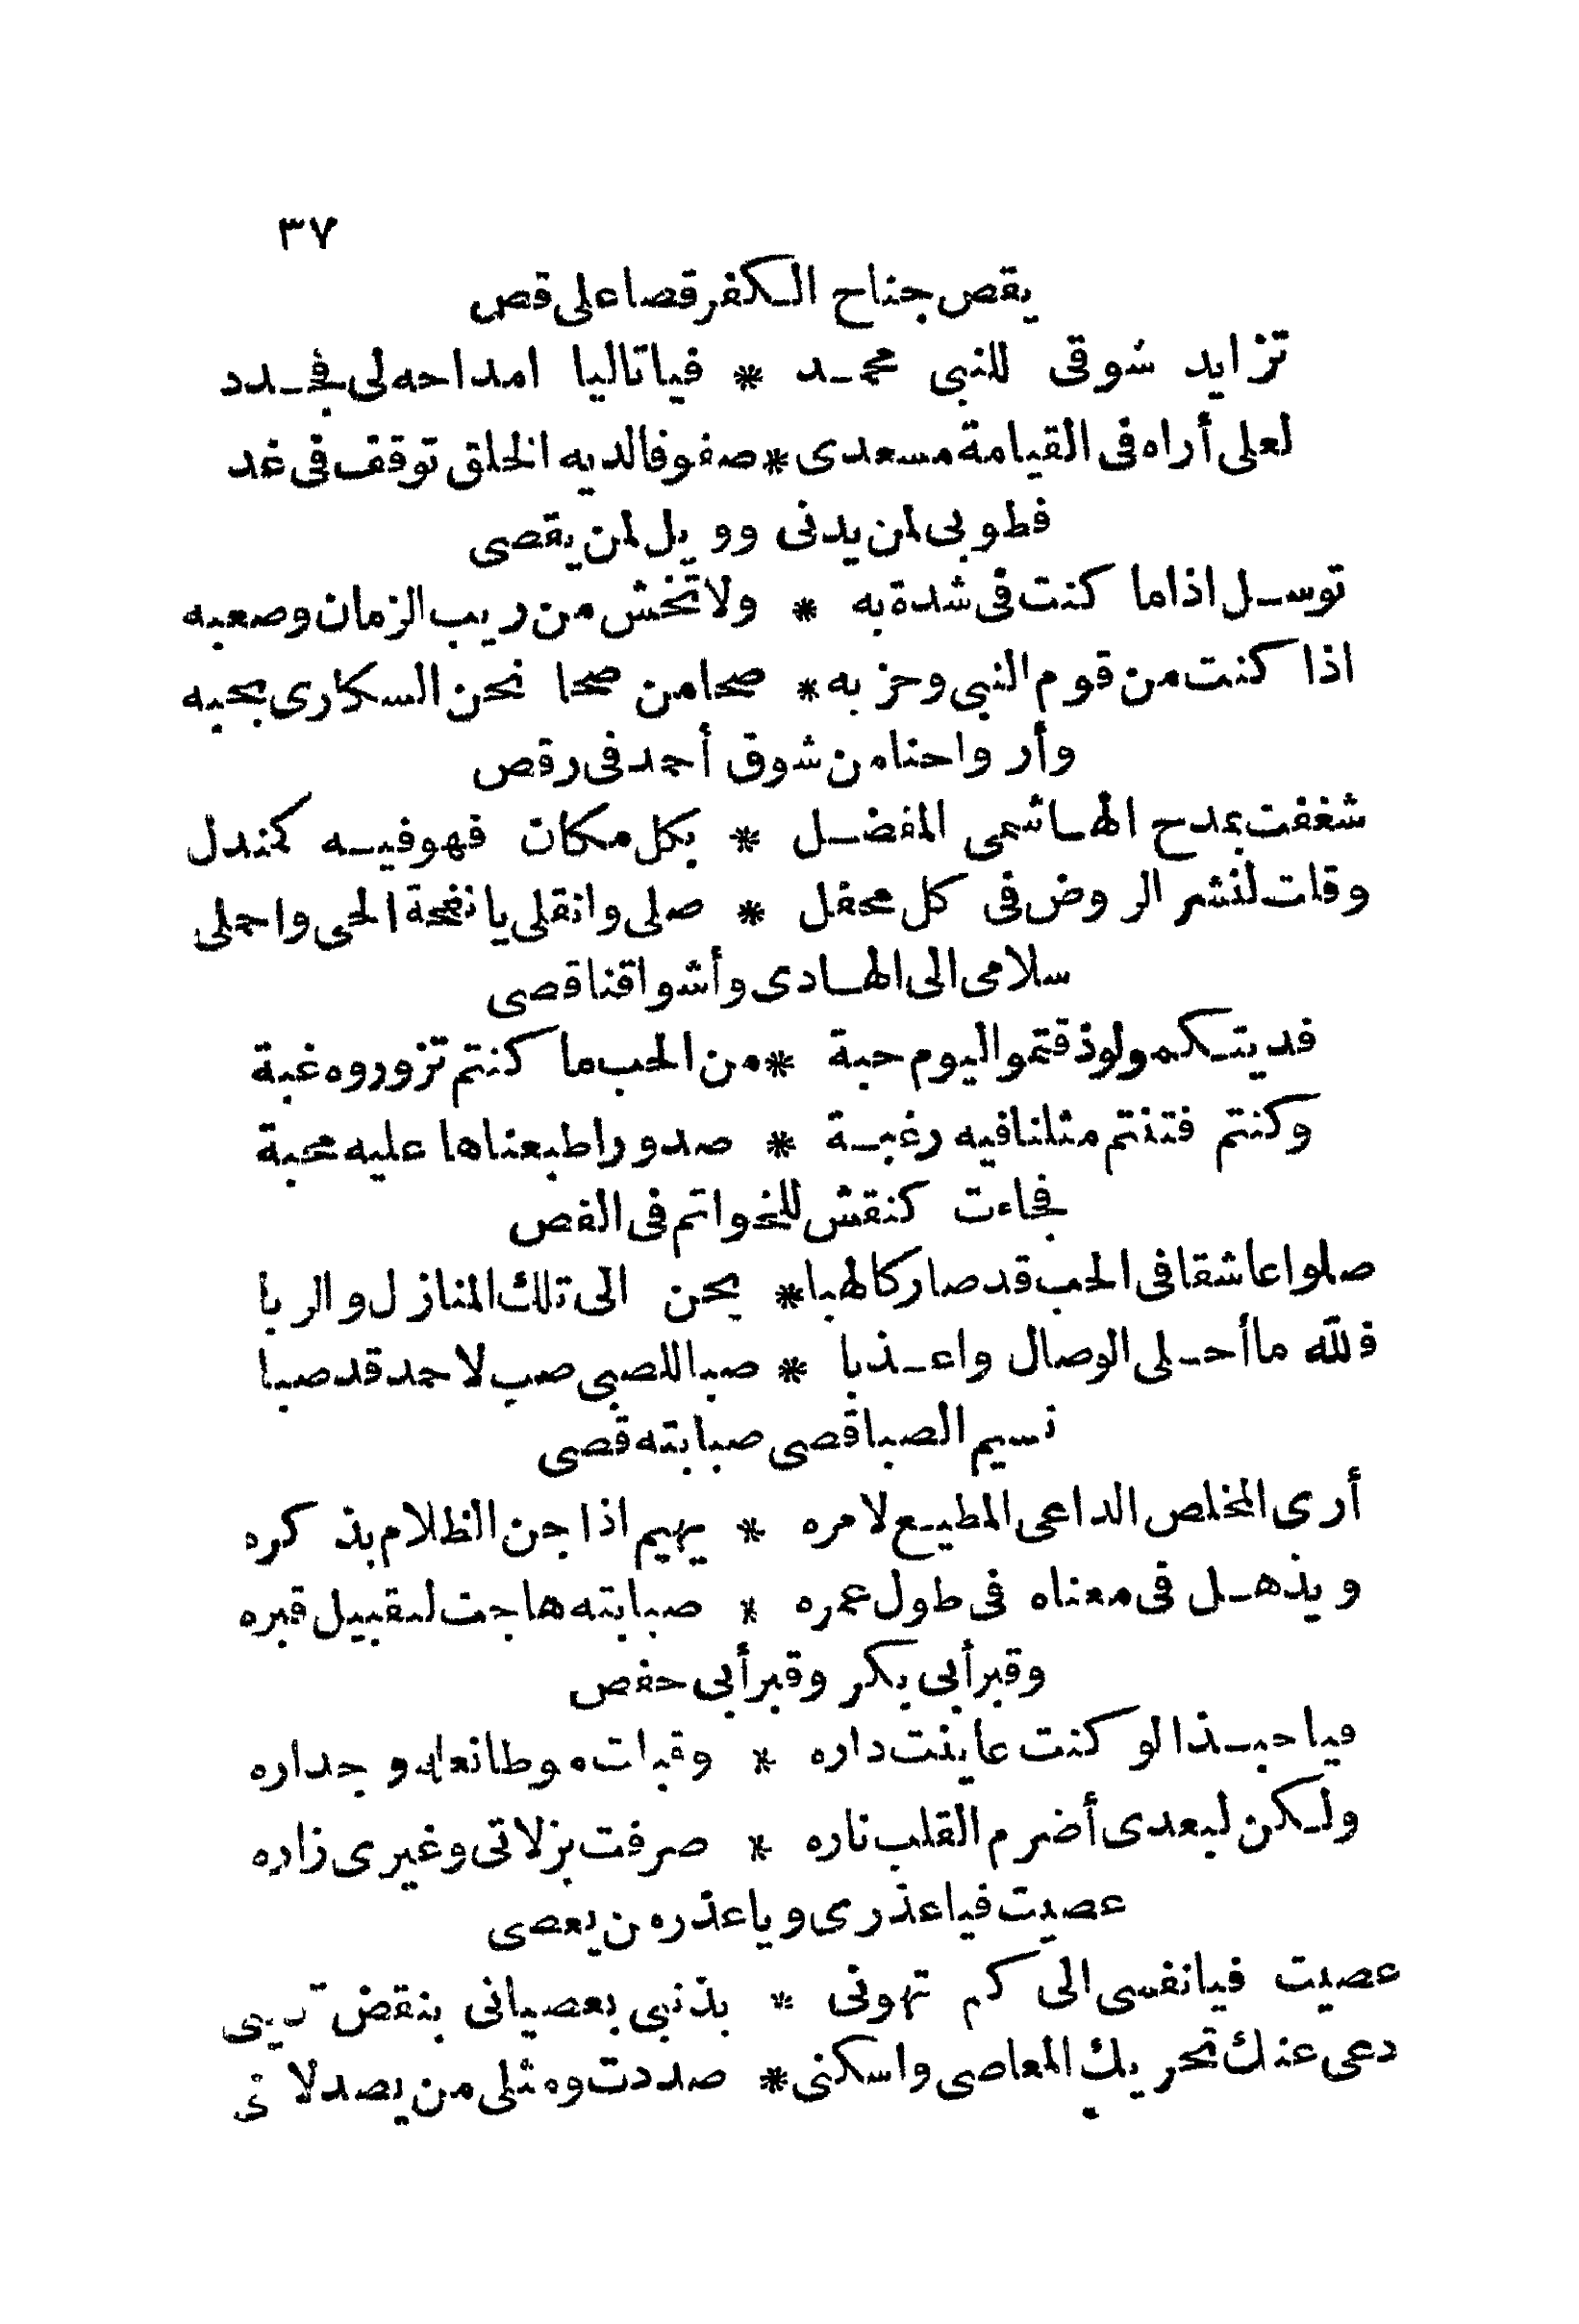 ٣٧
يقص جناح الكفر قصا على قص
تزايد شوقى للنبى محمد * فيا تاليا امداحه لى فجدد
لعلى أراه فى القيامة مسعدى * صفوفا لديه الخلق توقف فى غد
فطوبى لمن يدنى وويل لمن يقصى
توسل اذا ما كنت فى شدة به * ولا تخش من ريب الزمان وصعبه
اذا كنت من قوم النبى وحزبه * صحا من صحا نحن السكارى بحبه
وأرواحنا من شوق أحمد فى رقص
شغفت بمدح الهاشمى المفضل * بكل مكان فهو فيه كمندل
وقلت لنشر الروض فى كل محفل * صلى وانقلى يا نفحة الحى واحملى
سلامى الى الهادى وأشواقنا قصى
فديتكمو لو ذقتمو اليوم حبة * من الحب ما كنتم تزوروه غبة
وكنتم فتنتم مثلنا فيه رغبة * صدورا طبعناها عليه محبة
فجاءت كنقش للخواتم فى الفص
صلوا عاشقا فى الحب قد صار كالهبا * يحن الى تلك المنازل والربا
فلله ما أحلى الوصال واعذبا * صبا للصبى صب لاحمد قد صبا
نسيم الصبا قصى صبابته قصى
أرى المخلص الداعى المطيع لامره * يهيم اذا جن الظلام بذكره
ويذهل فى معناه فى طول عمره * صبابته هاجت لتقبيل قبره
وقبر أبى بكر وقبر أبى حفص
فيا حبذا لو كنت عاينت داره * وقبلت موطا نعله وجداره
ولكن لبعدى أضرم القلب ناره * صرفت بزلاتى وغيرى زاره
عصيت فيا عذرى ويا عذر من يعصى
عصيت فيا نفسى الى كم تهونى * بذنبى بعصيانى بنقض
دعى عنك تحريك المعاصى واسكنى * صددت ومثلى من يصد